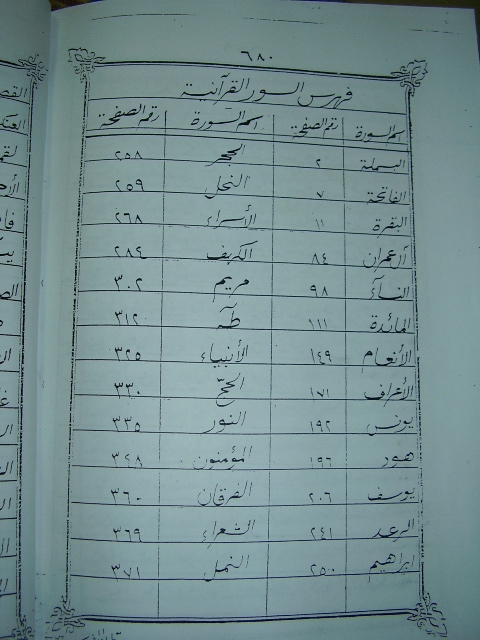 ٦٨٠
فهرس السور القرآنية
اسم السورة رقم الصفحة اسم السورة رقم الصفحة
البسملة ٢ الحجر ٢٥٨
الفاتحة ٧ النحل ٢٥٩
البقرة ١١ الأسراء ٢٦٨
آل عمران ٨٤ الكهف ٢٨٤
النسآء ٩٨ مريم ٣٠٢
المائدة ١١١ طه ٣١٢
الأنعام ١٤٩ الأنبياء ٣٢٥
الأعراف ١٧١ الحجّ ٣٣٠
يونس ١٩٢ النور ٣٣٥
هود ١٩٦ المؤمنون ٣٤٨
يوسف ٢٠٦ الفرقان ٣٦٠
الرعد ٢٤١ الشعراء ٣٦٩
ابراهيم ٢٥٠ النمل ٣٧١